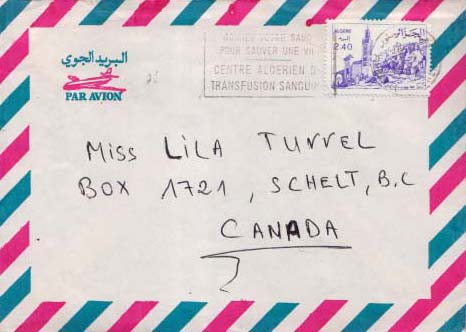 البريد الجوي
PAR AVION
DONNEZ VOTRE SANG
POUR SAUVER UNE VIE
CENTRE ALGERIEN D
TRANSFUSION SANGUI
ALGERIE الجزائر
2.40
MISS LILA TURREL
BOX 1721, SCHELT, B.C
CANADA